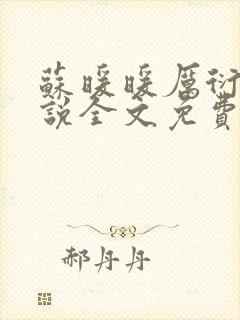 蘇暖暖厲衍
說全文免費
郝丹丹